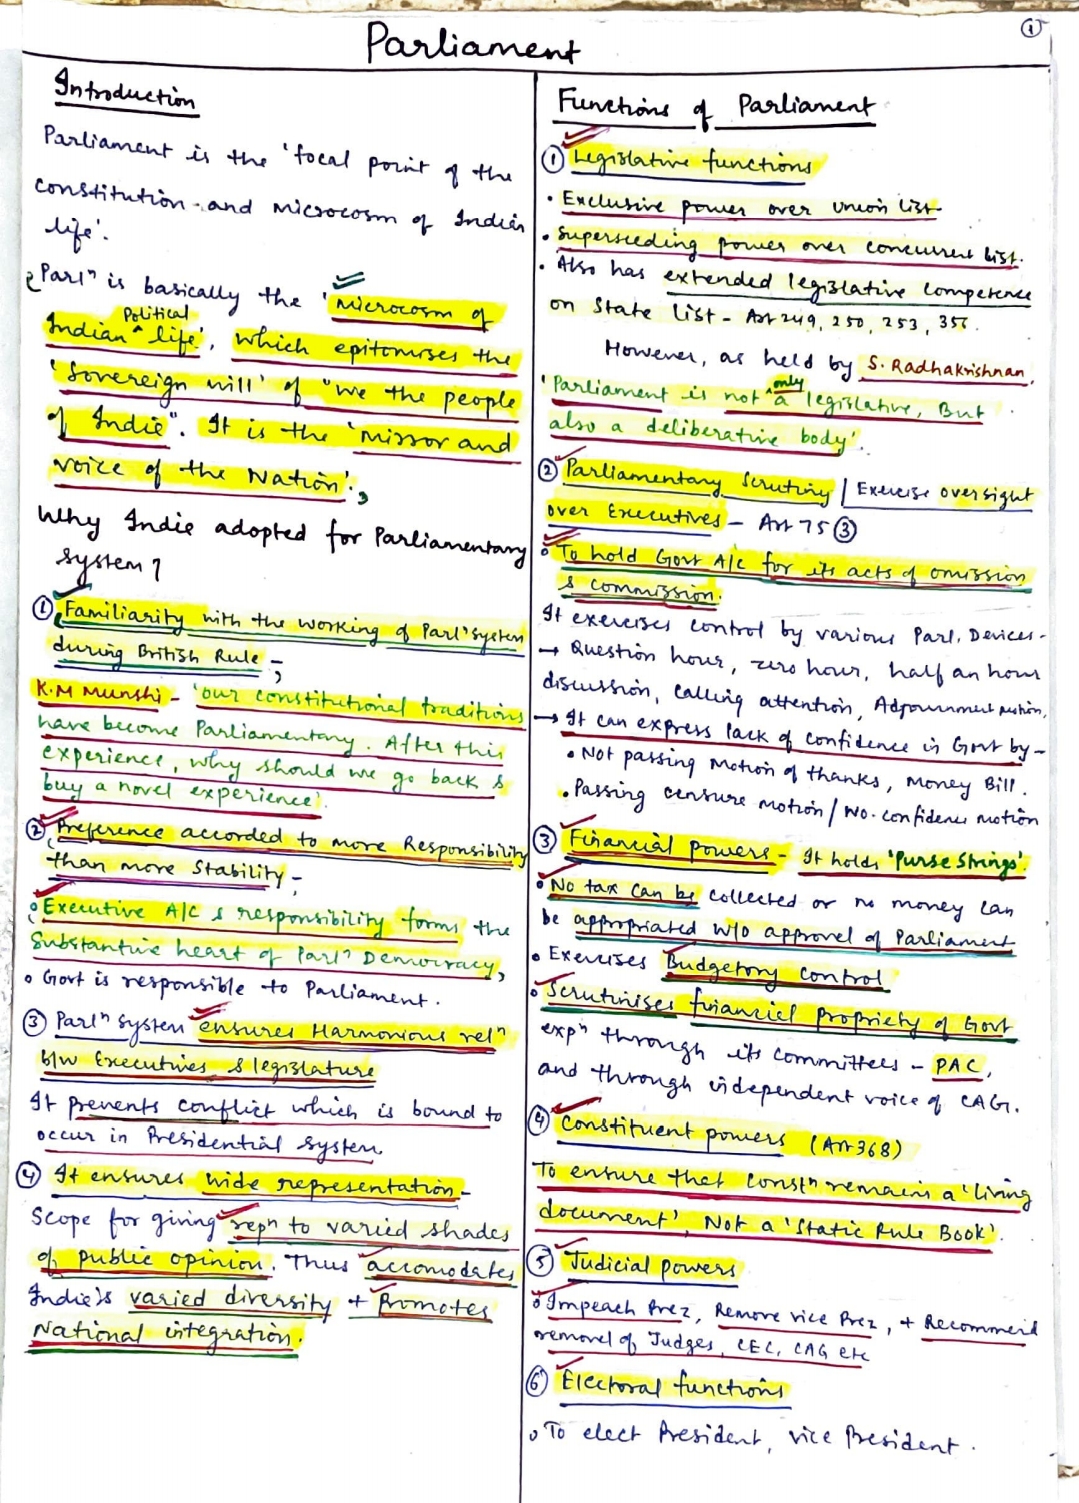 ①
Parliament
Introduction
Parliament is the 'focal point of the
constitution - and microcosm of Indian
life'.
Parlⁿ is basically the 'microcosm of
Political
Indian ^ life', which epitomises the
'Sovereign will' of "we the people
of India". It is the 'mirror and
voice of the Nation'.
Why India adopted for Parliamentary
system?
① Familiarity with the working of Parlⁿ system
during British Rule -
K.M Munshi - 'our constitutional traditions
have become Parliamentary. After this
experience, why should we go back &
buy a novel experience'.
② Preference accorded to more Responsibility
than more Stability -
Executive A/C & responsibility forms the
Substantive heart of Parlⁿ Democracy,
Govt is responsible to Parliament.
③ Parlⁿ system ensures Harmonious relⁿ
b/w Executives & legislature
It prevents conflict which is bound to
occur in Presidential system
④ It ensures wide representation -
Scope for giving repⁿ to varied shades
of public opinion. Thus accomodates
India's varied diversity + Promotes
National integration.
Functions of Parliament
① Legislative functions
• Exclusive power over union list
• Superseeding power over concurrent list.
• Also has extended legislative competence
on State list - Art 249, 250, 253, 356.
However, as held by S. Radhakrishnan,
only
'Parliament is not ^ a legislative, But
also a deliberative body'.
② Parliamentary Scrutiny / Exercise oversight
over Executives - Art 75③
• To hold Govt A/c for its acts of omission
& commission.
It exercises control by various Parl. Devices -
→ Question hour, zero hour, half an hour
discussion, calling attention, Adjournment motion,
→ It can express lack of confidence in Govt by -
• Not passing Motion of thanks, Money Bill.
• Passing censure motion / No-confidence motion
③ Financial powers - It holds 'Purse Strings'.
• No tax can be collected or no money can
be appropriated w/o approval of Parliament
• Exercises Budgetory control
• Scrutinises financial propriety of Govt
expⁿ through its committees - PAC,
and through independent voice of CAG.
④ Constituent powers (Art 368)
To ensure that Constⁿ remains a 'living
document', Not a 'Static Rule Book'.
⑤ Judicial powers
• Impeach Prez, Remove vice Prez, + Recommend
removal of Judges, CEC, CAG etc
⑥ Electoral functions
• To elect President, vice President.